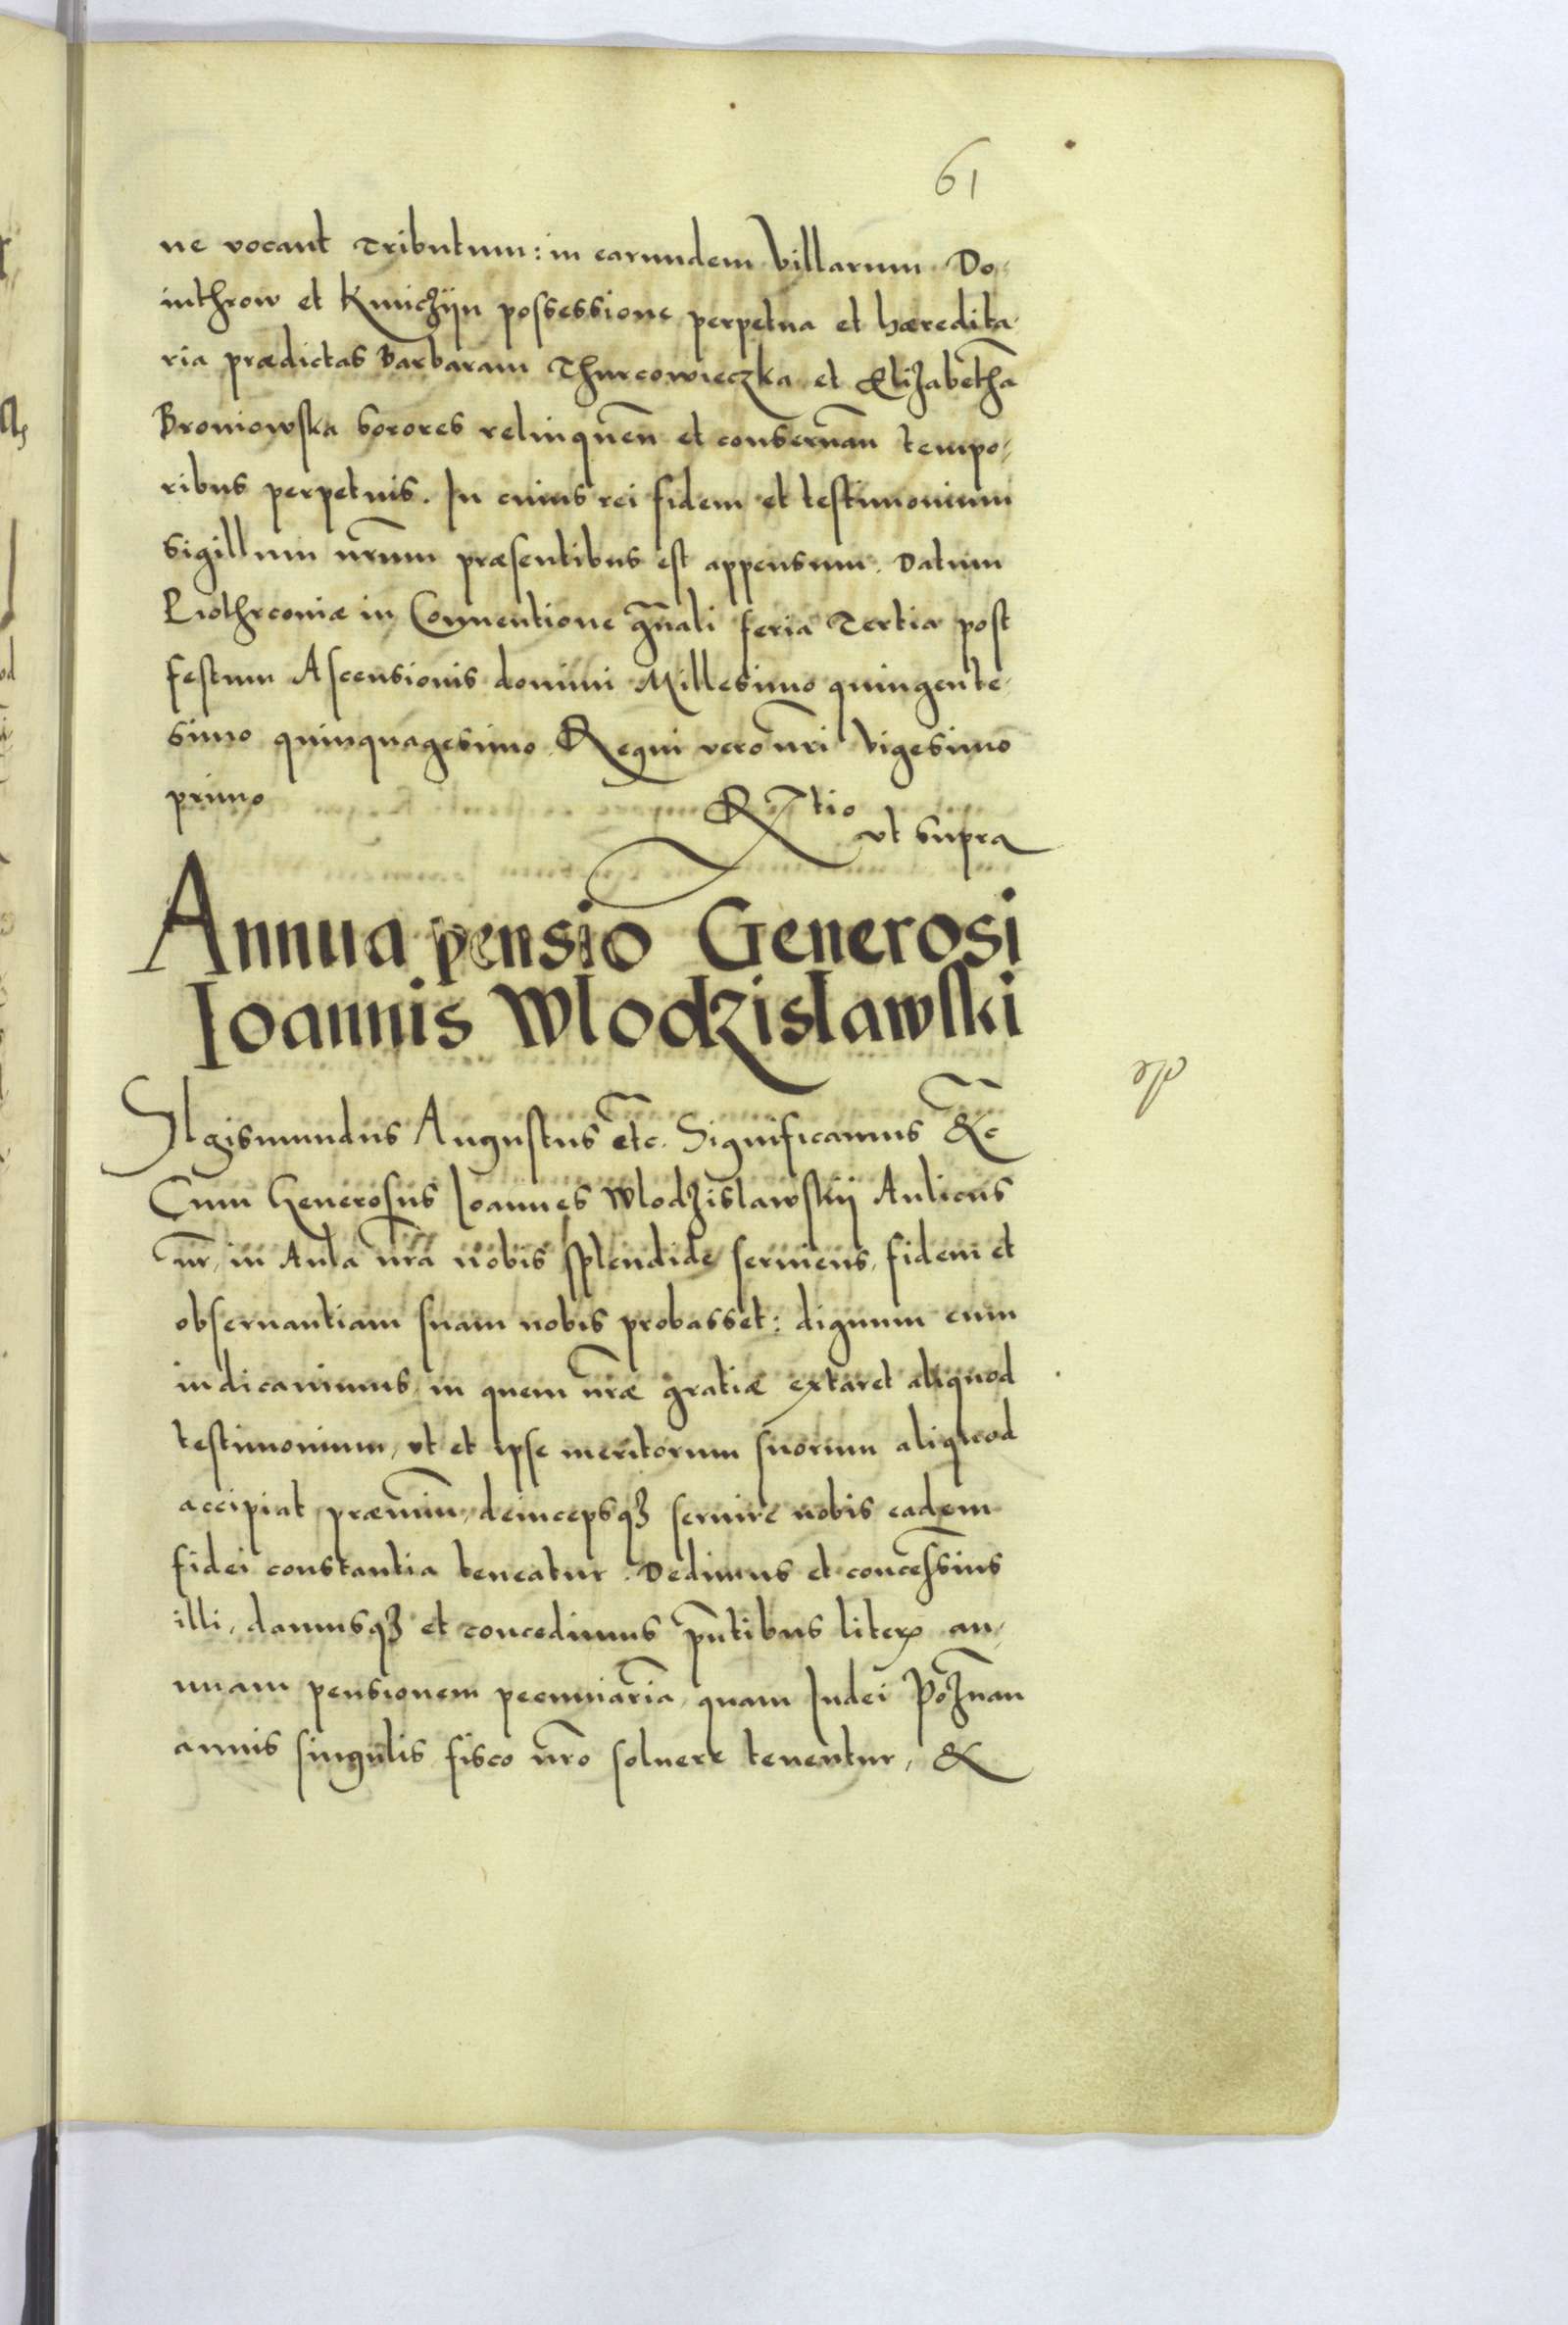 61
ne vocant Tributum: in earundem Villarum Do-
inthrow et Kmiczÿn possessione perpetua et hæredita-
ria prædictas Barbaram Thurcowieczka et Elizabethā
Broniowska sorores relinquen̄ et conseruan̄ tempo-
ribus perpetuis. In cuius rei fidem et testimonium
sigillum nr̄um præsentibus est appensum. Datum
Piothrconiæ in Conuentione gn̄ali feria Tertia post
festum Ascensionis domini Millesimo quingente-
simo quinquagesimo. Regni vero nr̄i Vigesimo
primo
Rtio
vt supra
Annua pensio Generosi
Ioannis Wlodzislawski
SIgismundus Augustus etc̄. Significamus &c̄
Cum Generosus Ioannes Wlodzislawskÿ Aulicus
nr̄, in Aula nr̄a nobis splendide seruiens, fidem et
obseruantiam suam nobis probasset: dignum eum
iudicauimus in quem nr̄æ gratiæ extaret aliquod
testimonium, vt et ipse meritorum suorum aliquod
accipiat præmiū, deincepsqȝ seruire nobis eadem
fidei constantia teneatur. Dedimus et concessim̄s
illi, damusqȝ et concedimus pn̄tibus literꝭ an-
nuam pensionem pecuniariā, quam Iudei Poznan̄
annis singulis fisco nr̄o soluere tenentur, &